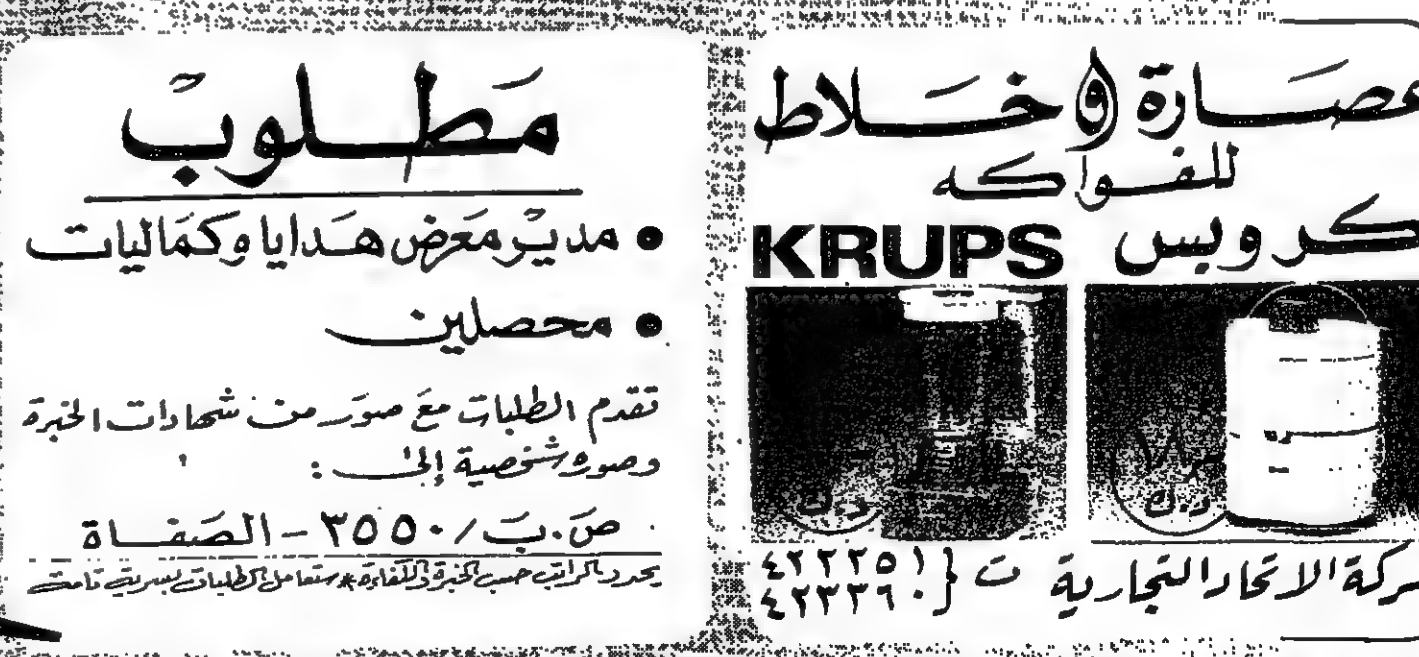 عصارة و خلاط
للفواكه
كروبس KRUPS
د.ك
د.ك
شركة الاتحاد التجارية ت { ٤٢٢٢٥١
٤٢٣٣٦٠ }
مطلوب
• مدير معرض هدايا وكماليات
• محصلين
تقدم الطلبات مع صور من شهادات الخبرة
وصوره شخصية إلى :
ص.ب / ٣٥٥٠ - الصفاة
يحدد الراتب حسب الخبرة والكفاءة * ستعامل الطلبات بسرية تامة